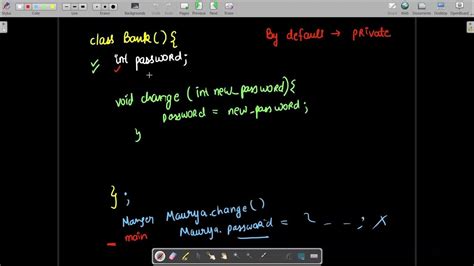 class Bank(){
By default → private
int password;
void change (int new_password){
password = new_password;
}
};
Manger Maurya.change()
main
Maurya.password = ? _ _ ; X